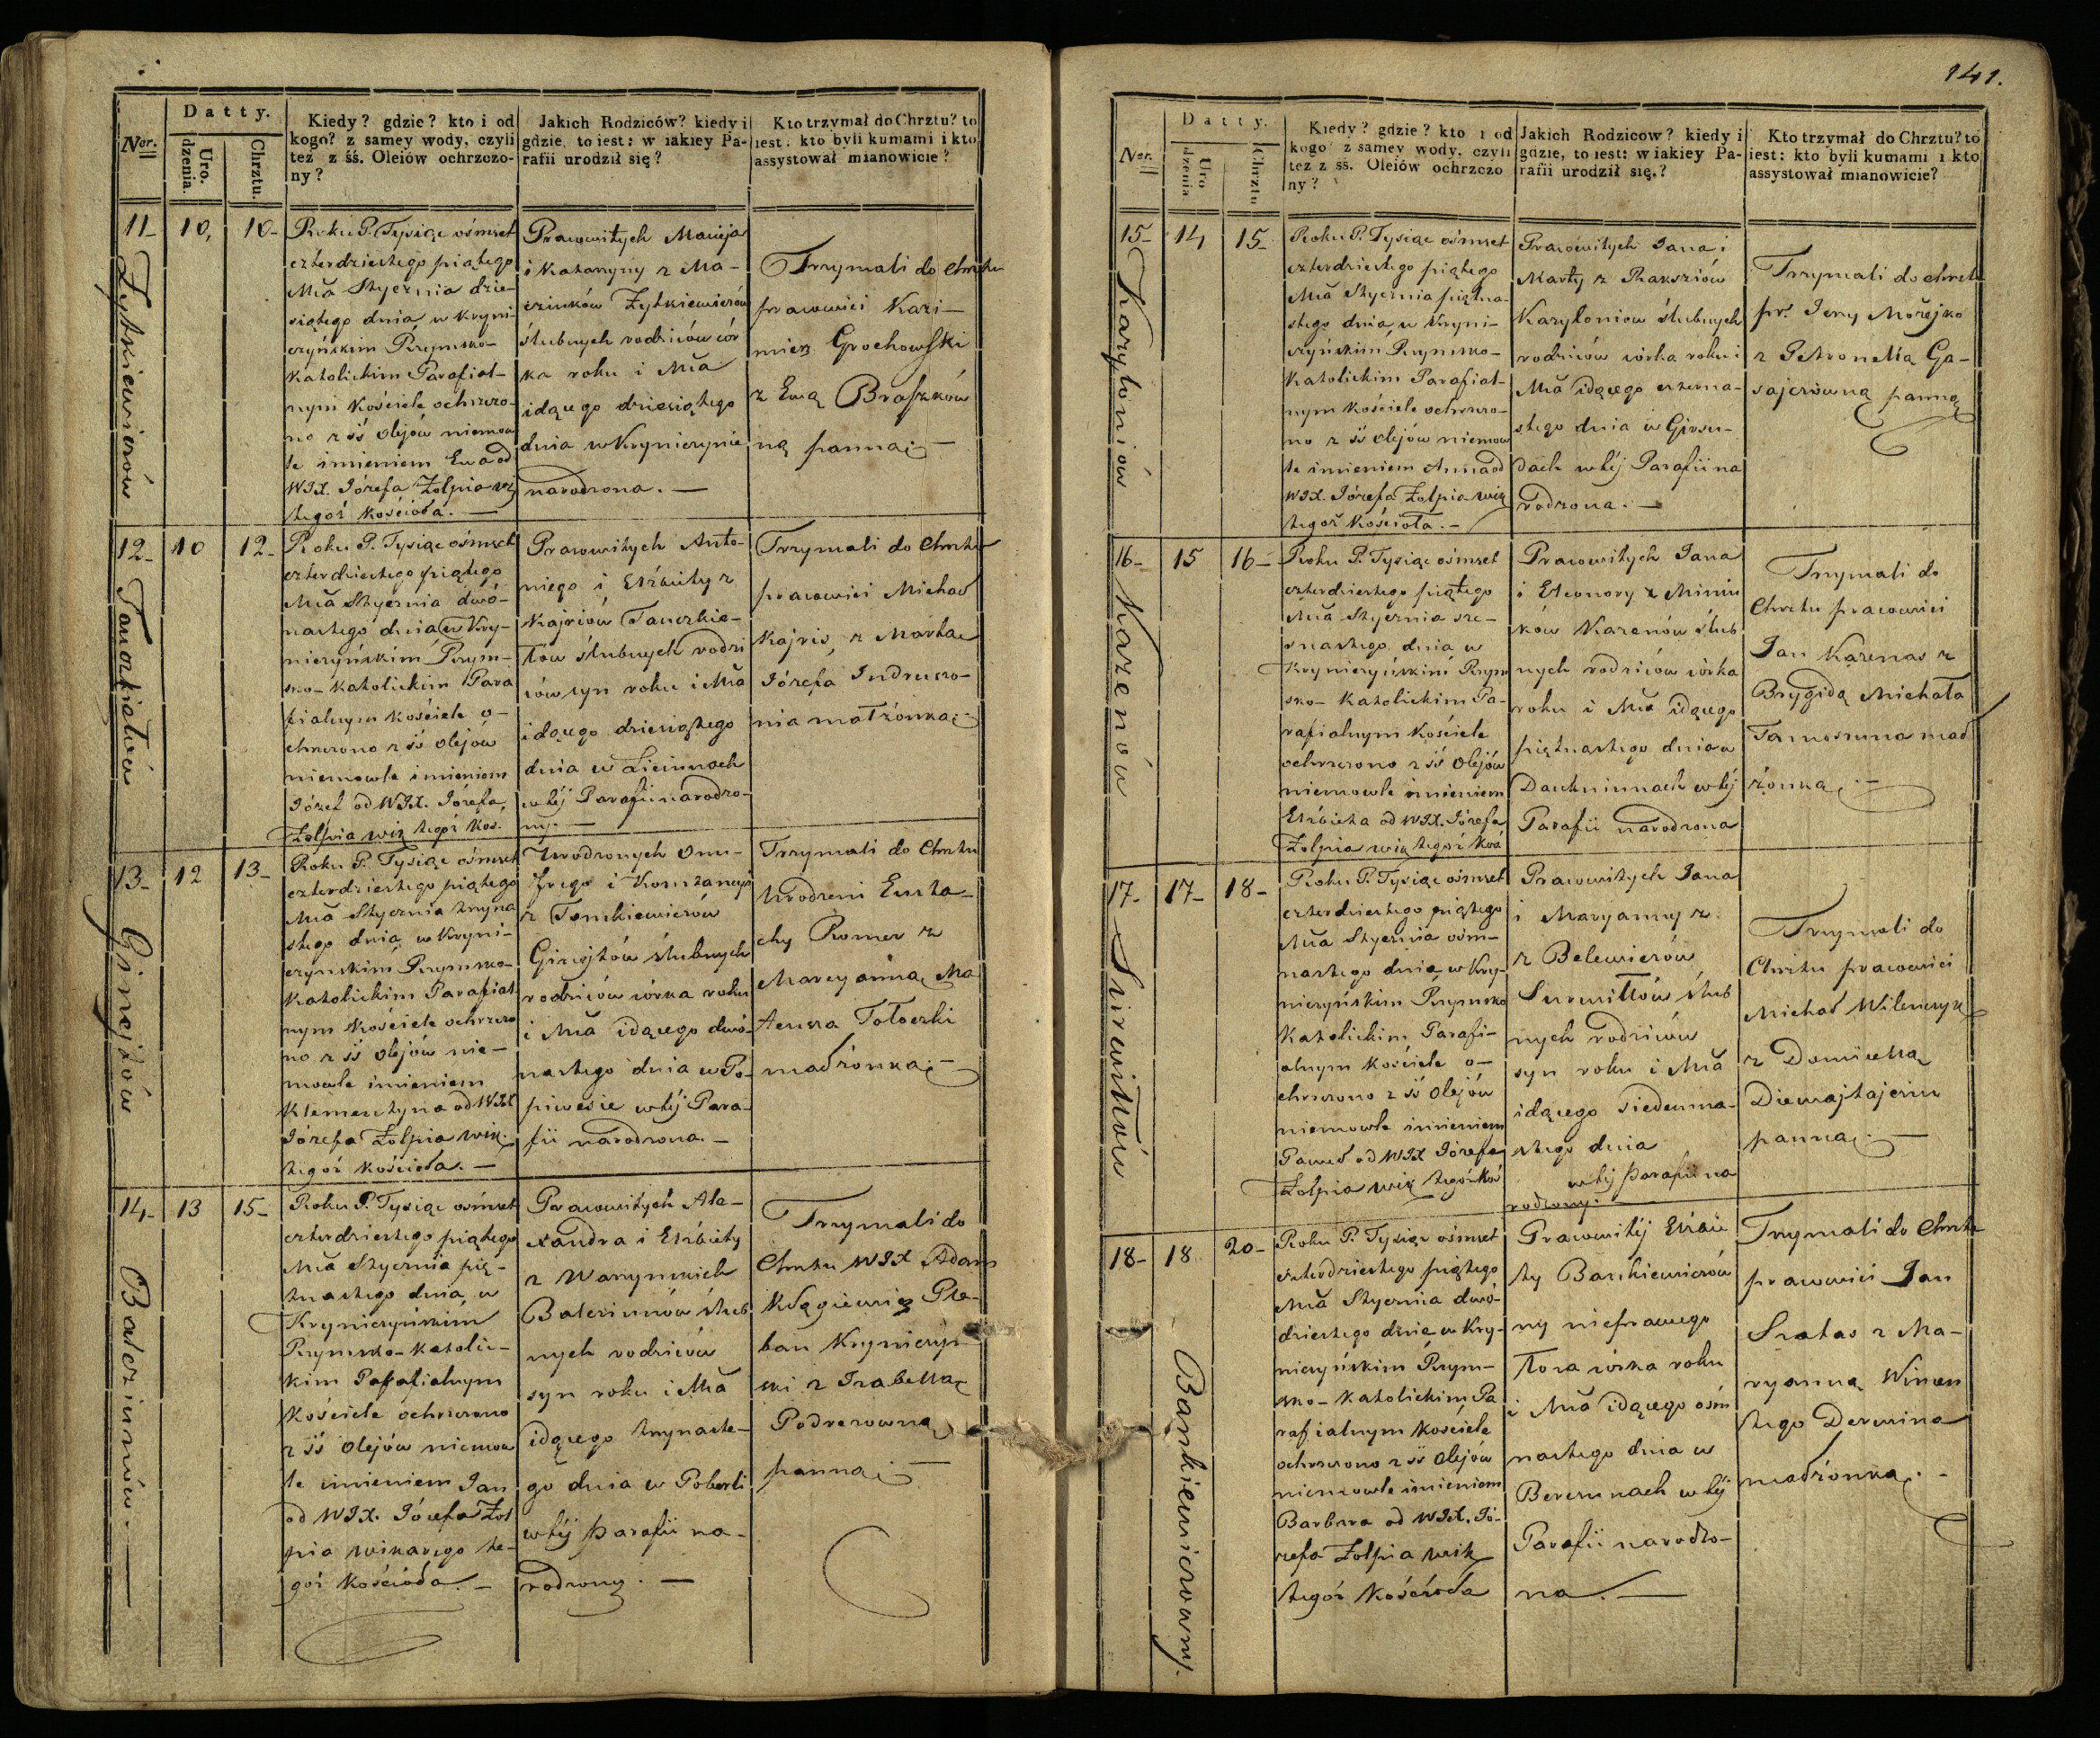 Datty.
Ner.
Uro.
dzenia.
Chrztu.
Kiedy? gdzie? kto i od
kogo? z samey wody, czyli
też z śś. Oleiów ochrzczo-
ny?
Jakich Rodziców? kiedy i
gdzie, to iest: w iakiey Pa-
rafii urodził się?
Kto trzymał do Chrztu? to
iest: kto byli kumami i kto
assystował mianowicie?
11-
10,
10-
Żytkiewiczów
Roku P. Tysiąc ośmset
czterdziestego piątego
Mca Stycznia dzie-
siątego dnia w Kryni-
czyńskim Rzymsko-
Katolickim Parafial-
nym Kościele ochrzczo-
no z śś Olejów niemow
le imieniem Ewa od
WJX. Józefa Żołpia wz
tegoż Kościoła.-
Pracowitych Macieja
i Katarzyny z Ma-
ciunków Żytkiewiczów
ślubnych rodziców cór
ka roku i Mca
idącego dziesiątego
dnia w Kryniczynie
narodzona.-
Trzymali do Chrztu
pracowici Kazi-
mierz Grochowski
z Ewą Braszków
ną panną.-
12-
10
12-
Tauczkiałów
Roku P. Tysiąc ośmset
czterdziestego piątego
Mca Stycznia dwó-
nastego dnia w Kry-
niczyńskim Rzym-
sko-Katolickim Para
fialnym Kościele o-
chrzczono z śś Olejów
niemowle imieniem
Józef od WJX. Józefa
Żołpia wik tegoż Koś.
Pracowitych Anto-
niego i Elżbiety z
Kajriów Tauczkia-
łów ślubnych rodzi
ców syn roku i Mca
idącego dziesiątego
dnia w Liciunach
w tej Parafii narodzo-
ny.-
Trzymali do Chrztu
pracowici Michał
Kajris, z Martą
Józefa Indruszo-
nia małżonką.
13-
12
13-
Ginejtów
Roku P. Tysiąc ośmset
czterdziestego piątego
Mca Stycznia trzyna
stego dnia w Kryni-
czyńskim Rzymsko-
Katolickim Parafial
nym Kościele ochrzczo
no z śś Olejów nie-
mowle imieniem
Klementyna od WJX
Józefa Żołpia wik.
tegoż Kościoła.-
Urodzonych Onu-
frego i Konstancyi
z Tomkiewiczów
Ginejtów ślubnych
rodziców córka roku
i Mca idącego dwó-
nastego dnia w Po-
piwesie w tej Para-
fii narodzona.-
Trzymali do Chrztu
Urodzeni Eusta-
chy Romer z
Maryanną Ma
teusza Tołoczki
małżonką.-
14-
13
15-
Balcziunów.
Roku P. Tysiąc ośmset
czterdziestego piątego
Mca Stycznia pię-
tnastego dnia w
Krynieczyńskim
Rzymsko-Katolic-
kim Parafialnym
Kościele ochrzczono
z śś Olejów niemow
le imieniem Jan
od WJX. Józefa Żoł
pia wikarego te-
goż Kościoła.-
Pracowitych Ale-
xandra i Elżbiety
z Warynskich
Balcziunów ślub
nych rodziców
syn roku i Mca
idącego trzynaste-
go dnia w Poberli
w tej Parafii na-
rodzony.-
Trzymali do
Chrztu WJX Adam
Kłągiewicz Ple-
ban Krynieczyń
ski z Izabellą
Podrezowną
panną.-
141.
Datty.
Ner.
Uro
dzenia
Chrztu
Kiedy? gdzie? kto i od
kogo? z samey wody, czyli
tez z śś. Oleiów ochrzczo
ny?
Jakich Rodziców? kiedy i
gdzie, to iest: w iakiey Pa-
rafii urodził się?
Kto trzymał do Chrztu? to
iest: kto byli kumami i kto
assystował mianowicie?
15-
14
15-
Karyłoniów
Roku P. Tysiąc ośmset
czterdziestego piątego
Mca Stycznia piętna-
stego dnia w Kryni-
czyńskim Rzymsko-
Katolickim Parafial-
nym Kościele ochrzczo-
no z śś Olejów niemow
le imieniem Anna od
WJX. Józefa Żołpia wik
tegoż Kościoła.-
Pracowitych Jana i
Marty z Rakszciów
Karyłoniow ślubnych
rodziców córka roku i
Mca idącego czterna-
stego dnia w Girsu-
dach w tej Parafii na
rodzona.-
Trzymali do Chrztu
pr. Jerzy Możejko
z Petronellą Ga-
sajcówną panną
16-
15
16-
Kazenów
Roku P. Tysiąc ośmset
czterdziestego piątego
Mca Stycznia sze-
snastego dnia w
Krynieczyńskim Rzym
sko-Katolickim Pa-
rafialnym Kościele
ochrzczono z śś Olejów
niemowle imieniem
Elżbieta od WJX. Józefa
Żołpia wik tegoż Koś
Pracowitych Jana
i Eleonory z Miniu
ków Kazenów ślub
nych rodziców córka
roku i Mca idącego
piętnastego dnia w
Daukniunach w tej
Parafii narodzona
Trzymali do
Chrztu pracowici
Jan Kazenas z
Brygidą Michała
Tamoszuna mał
żonką.-
17-
17-
18-
Surwiłłów
Roku P. Tysiąc ośmset
czterdziestego piątego
Mca Stycznia ośm-
nastego dnia w Kry-
niczyńskim Rzymsko
Katolickim Parafi-
alnym Kościele o-
chrzczono z śś Olejów
niemowle imieniem
Paweł od WJX Józefa
Żołpia wik tegoż Koś
Pracowitych Jana
i Maryanny z
z Belewiczów
Surwiłłów ślub
nych rodziców
syn roku i Mca
idącego siedemna-
stego dnia
w tej Parafii na
rodzony.
Trzymali do
Chrztu pracowici
Michał Wilenczyk
z Domicellą
Diemajtajciu
panną.-
18-
18
20-
Bankiewiczowny.
Roku P. Tysiąc ośmset
czterdziestego piątego
Mca Stycznia dwó-
dziestego dnia w Kry-
niczyńskim Rzym-
sko-Katolickim Pa
rafialnym Kościele
ochrzczono z śś Olejów
niemowle imieniem
Barbara od WJX. Jó-
zefa Żołpia wik
tegoż Kościoła
Pracowitej Elżbie
ty Bankiewiczów
ny nieprawego
łoża córka roku
i Mca idącego ośm
nastego dnia w
Berezunach w tej
Parafii narodzo-
na.-
Trzymali do Chrztu
pracowici Jan
Szatas z Ma-
ryanną Wincen
tego Derwina
małżonką.-